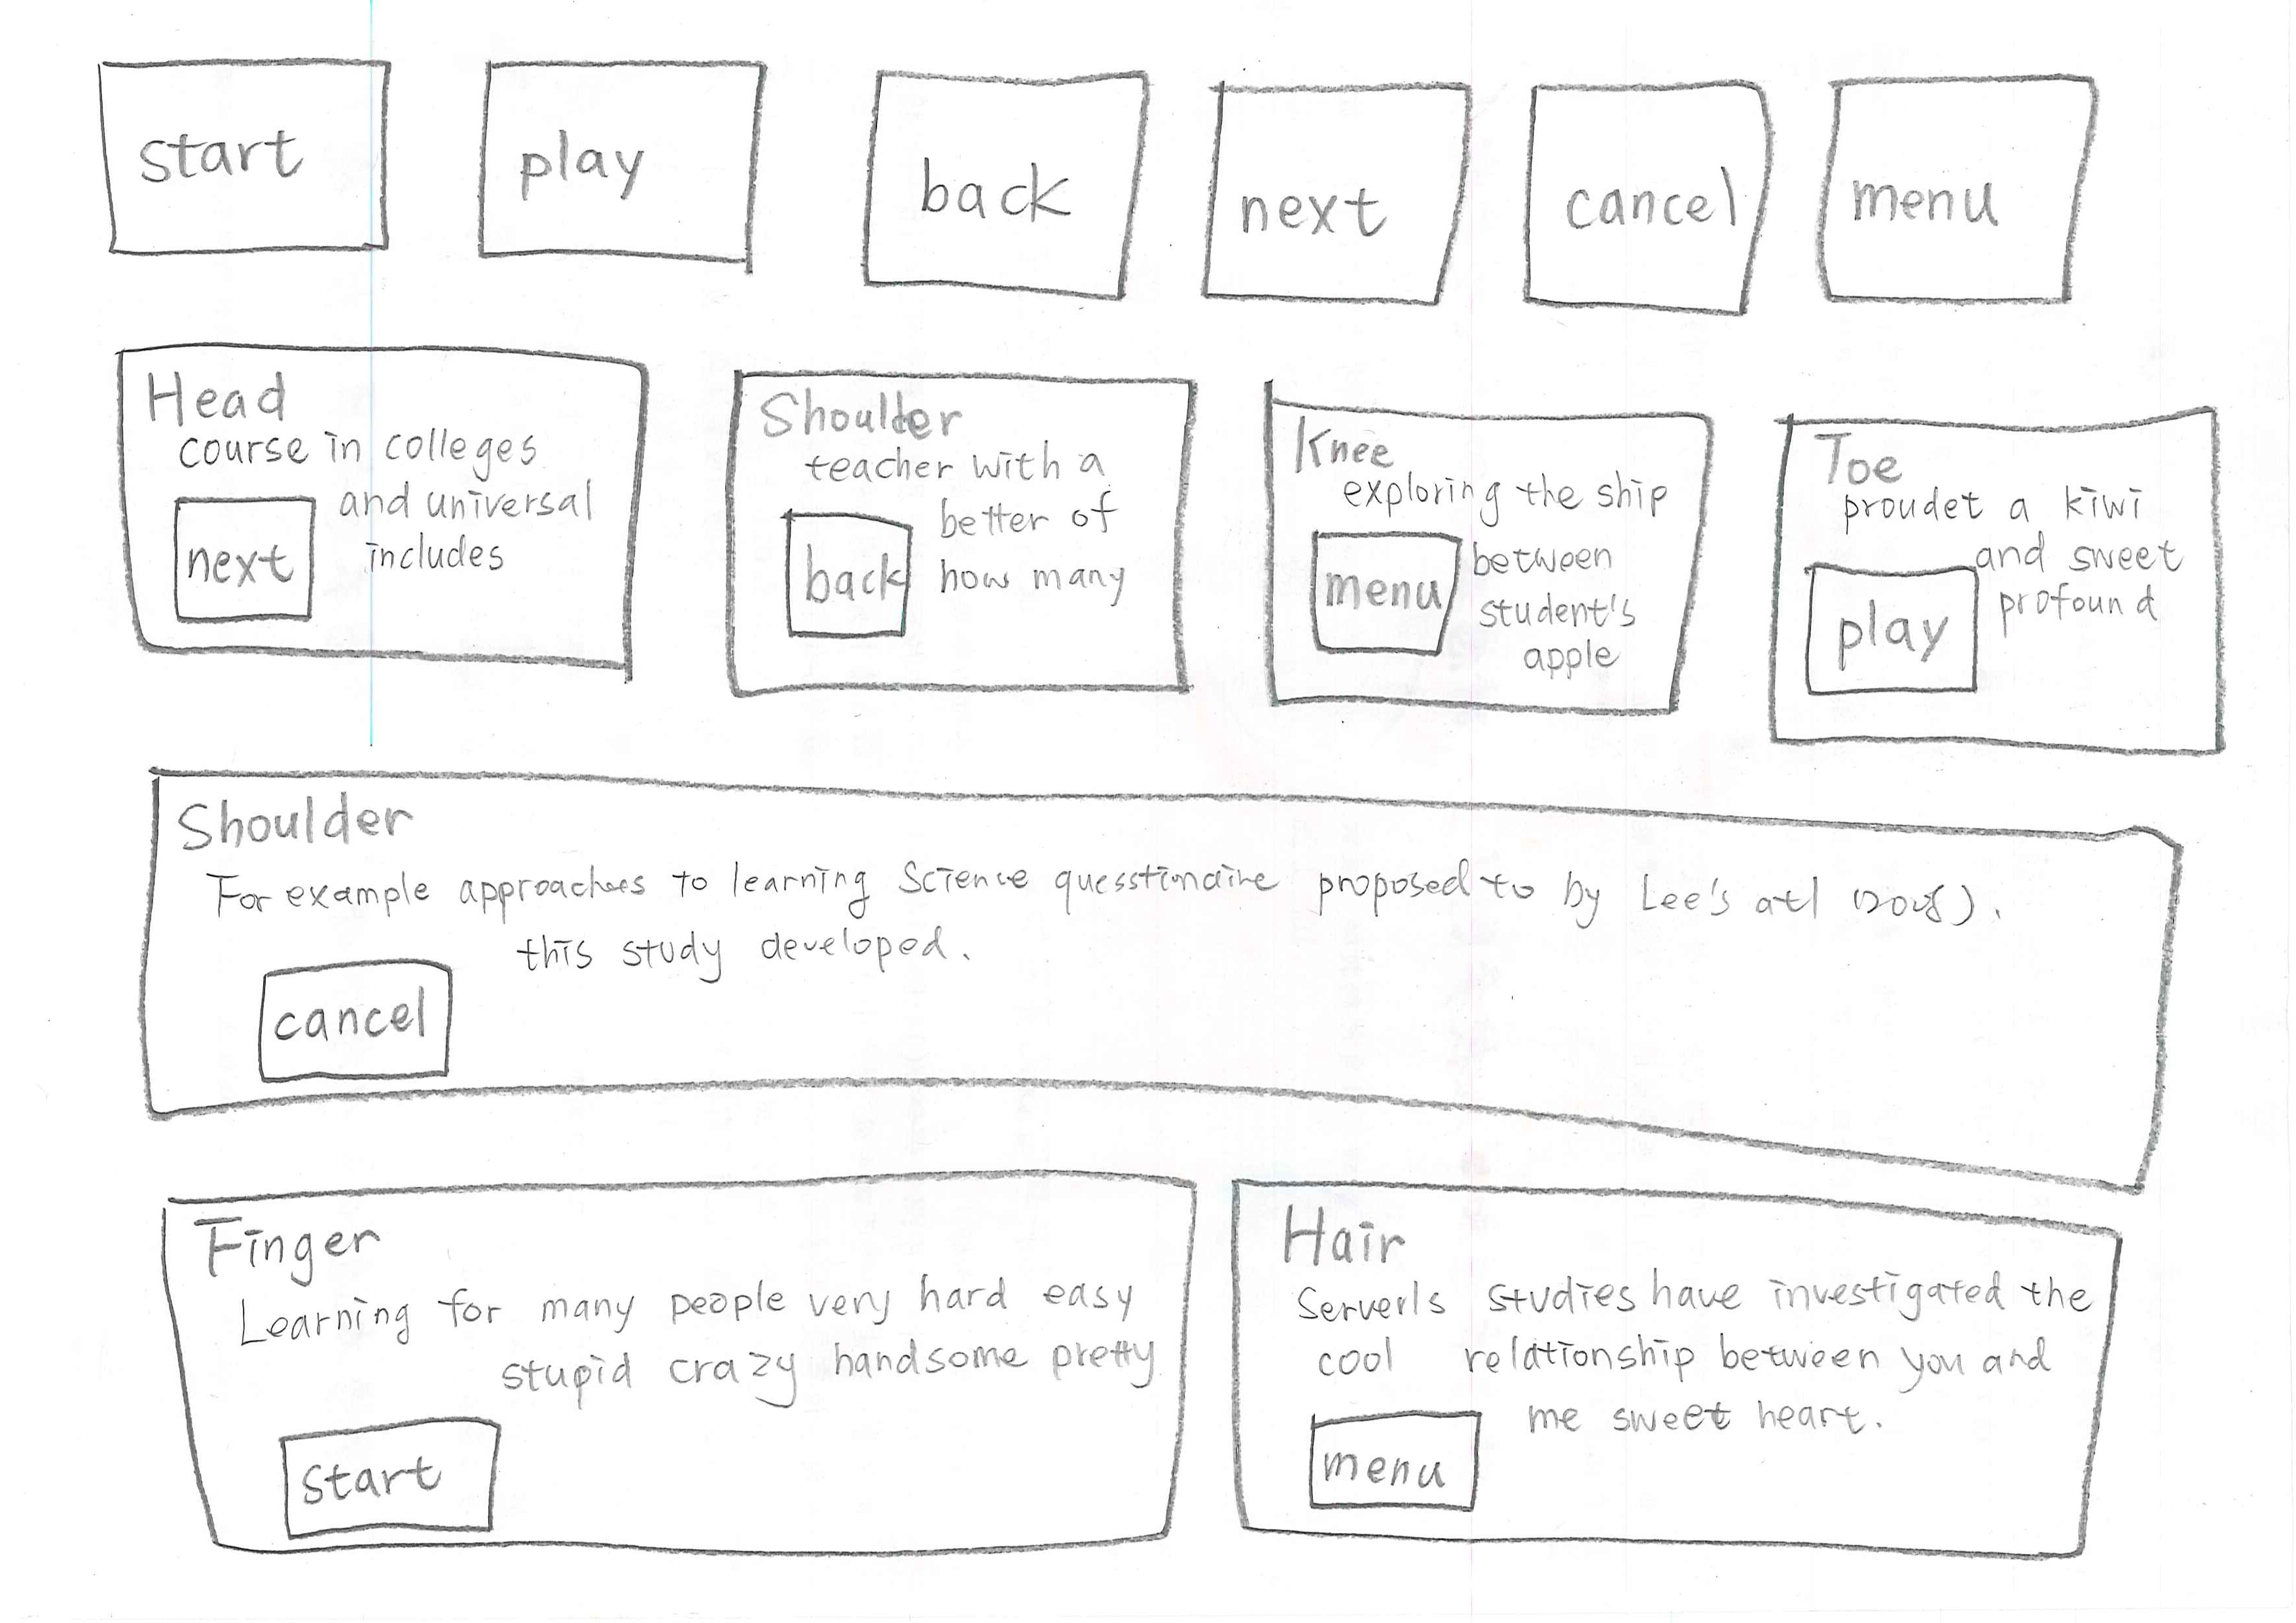 start
play
back
next
cancel
menu
Head
course in colleges
and universal
includes
next
Shoulder
teacher with a
better of
how many
back
Knee
exploring the ship
between
student's
apple
menu
Toe
proudet a kiwi
and sweet
profound
play
Shoulder
For example approaches to learning Science quesstionaire proposed to by Lee's atl
this study developed.
cancel
Finger
Learning for many people very hard easy
stupid crazy handsome pretty
start
Hair
Serverls studies have investigated the
cool relationship between you and
me sweet heart.
menu